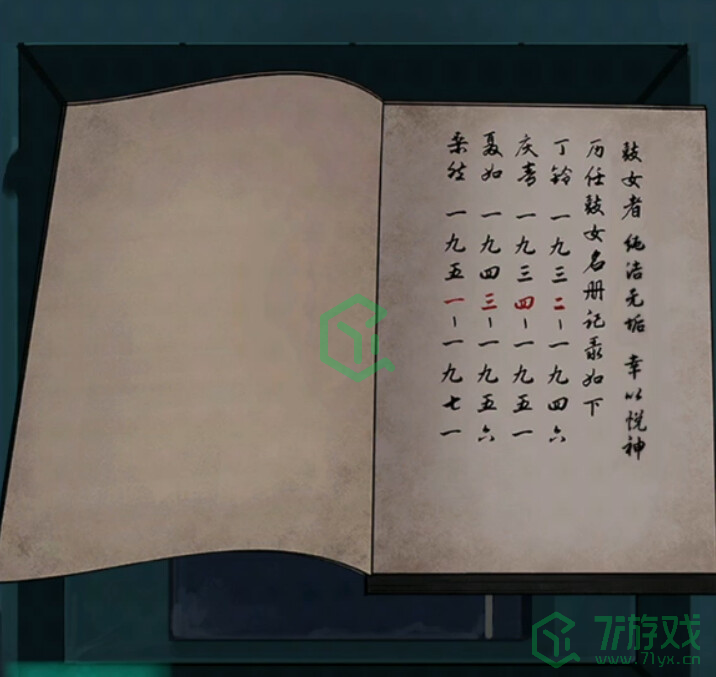 鼓女者 纯洁无垢 幸以悦神
历任鼓女名册记录如下
丁铃 一九三二-一九四六
庆春 一九三四-一九五一
聂如 一九四三-一九五六
桑然 一九五一-一九七一
7k游戏
www.71yx.cn